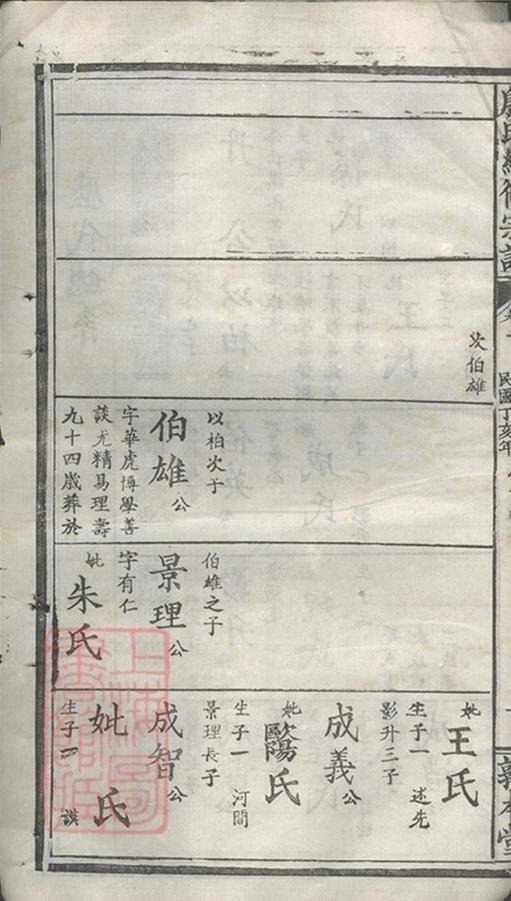 次伯雄
以柏次子
伯雄公
字華虎博學善
談尤精易理壽
九十四歲葬於
伯雄之子
景理公
字有仁
妣
朱氏
妣
王氏
生子一 述先
影升三子
成義公
妣
歐陽氏
生子一 河間
景理長子
成智公
妣 氏
生子一 謨
民國丁亥年